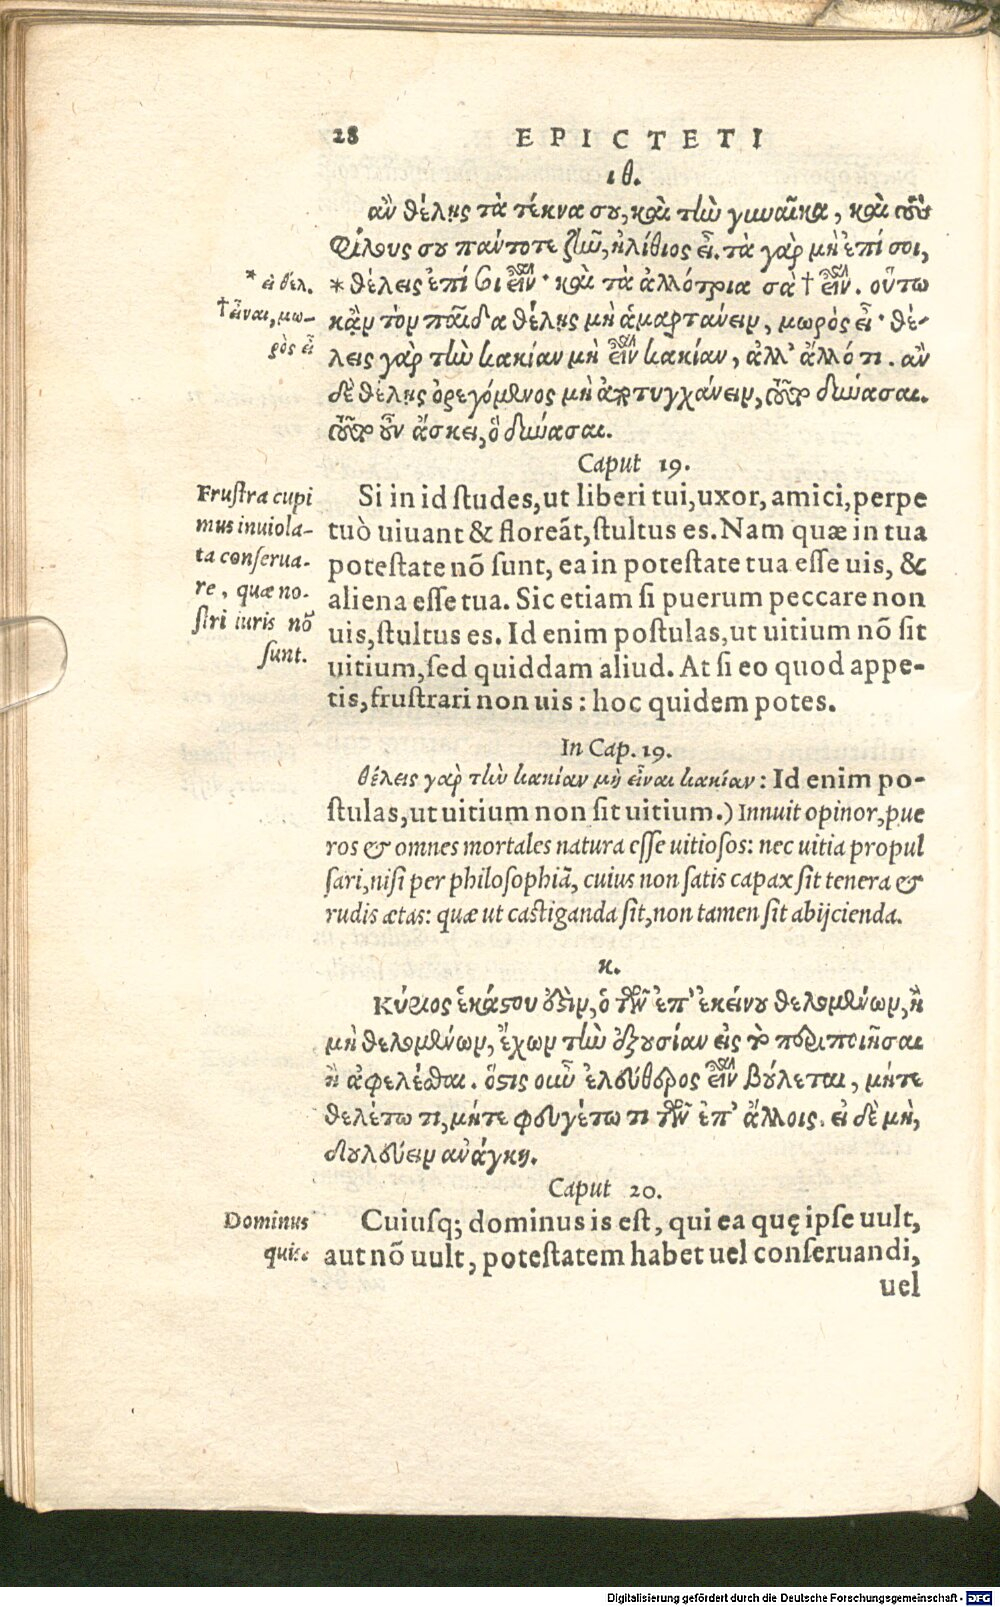 28 EPICTETI
ιθ.
ἂν θέλῃς τὰ τέκνα σου, καὶ τὴν γυναῖκα, καὶ τοὺς
φίλους σου πάντοτε ζῆν, ἠλίθιος εἶ. τὰ γὰρ μὴ ἐπί σοι,
* θέλεις ἐπί σοι εἶναι· καὶ τὰ ἀλλότρια σὰ † εἶναι. οὕτω
κἂν τὸν παῖδα θέλῃς μὴ ἁμαρτάνειν, μωρὸς εἶ· θέ-
λεις γὰρ τὴν κακίαν μὴ εἶναι κακίαν, ἀλλ' ἄλλό τι. ἂν
δὲ θέλῃς ὀρεγόμενος μὴ ἀποτυγχάνειν, τοῦτο δύνασαι.
τοῦτο οὖν ἄσκει, ὃ δύνασαι.
* εἰ θέλ.
† εἶναι, μω-
ρὸς εἶ
Caput 19.
Si in id studes, ut liberi tui, uxor, amici, perpe
tuò uiuant & floreãt, stultus es. Nam quæ in tua
potestate nõ sunt, ea in potestate tua esse uis, &
aliena esse tua. Sic etiam si puerum peccare non
uis, stultus es. Id enim postulas, ut uitium nõ sit
uitium, sed quiddam aliud. At si eo quod appe-
tis, frustrari non uis: hoc quidem potes.
Frustra cupi
mus inuiola-
ta conserua-
re, quæ no-
stri iuris nõ
sunt.
In Cap. 19.
θέλεις γὰρ τὴν κακίαν μὴ εἶναι κακίαν: Id enim po-
stulas, ut uitium non sit uitium.) Innuit opinor, pue
ros & omnes mortales natura esse uitiosos: nec uitia propul
sari, nisi per philosophiã, cuius non satis capax sit tenera &
rudis ætas: quæ ut castiganda sit, non tamen sit abijcienda.
κ.
Κύριος ἑκάστου ἐστὶν, ὁ τῶν ἐπ' ἐκείνου θελομένων, ἢ
μὴ θελομένων, ἔχων τὴν ἐξουσίαν εἰς τὸ περιποιῆσαι
ἢ ἀφελέσθαι. ὅστις οὖν ἐλεύθερος εἶναι βούλεται, μήτε
θελέτω τι, μήτε φευγέτω τι τῶν ἐπ' ἄλλοις. εἰ δὲ μὴ,
δουλεύειν ἀνάγκη.
Caput 20.
Cuiusq; dominus is est, qui ea quę ipse uult,
aut nõ uult, potestatem habet uel conseruandi,
uel
Dominus
quis.
Digitalisierung gefördert durch die Deutsche Forschungsgemeinschaft - DFG